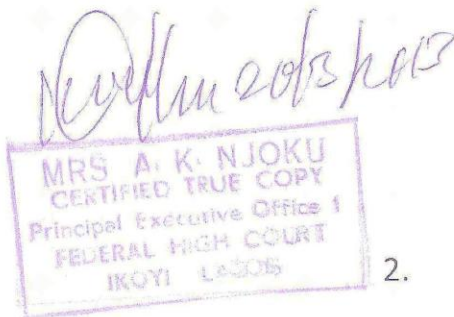 20/3/2013
MRS A. K. NJOKU
CERTIFIED TRUE COPY
Principal Executive Office 1
FEDERAL HIGH COURT
IKOYI LAGOS
2.